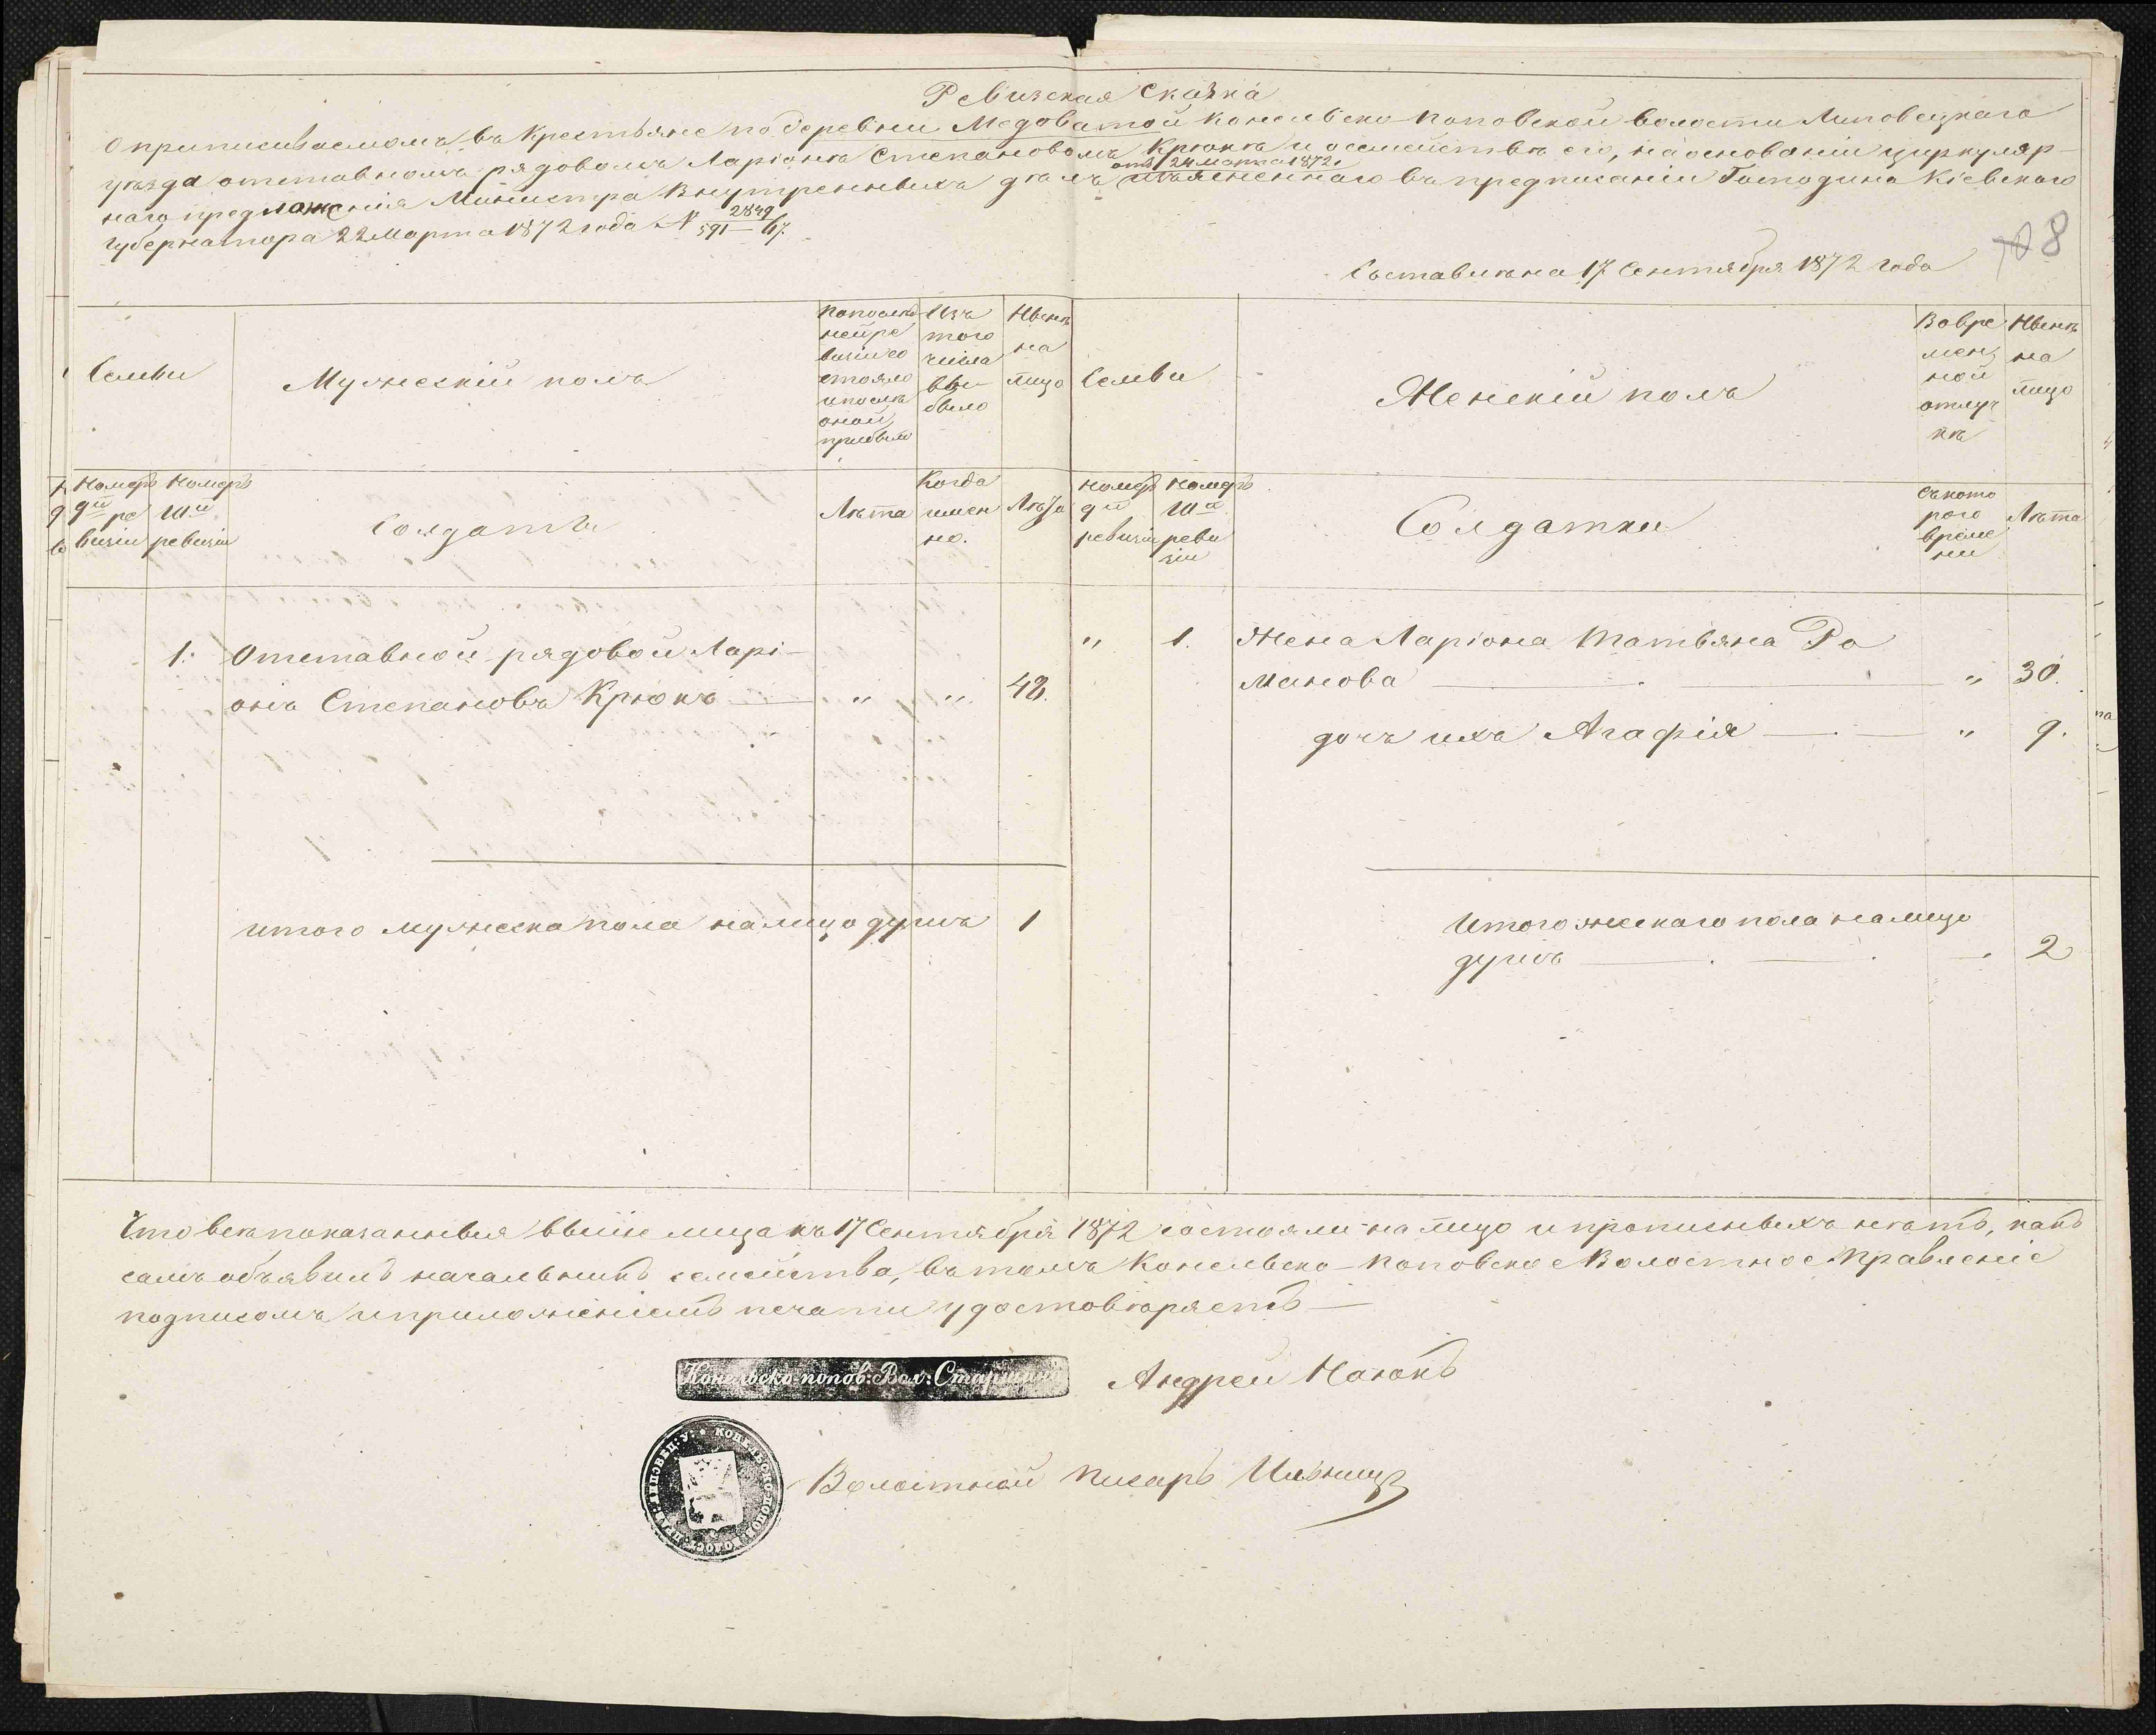 Ревизская Сказка
о приписываемомъ въ Крестьяне по деревни Медоватой Конельско Поповской волости Липовецкаго
уѣзда отставномъ рядовомъ Ларіонѣ Степановомъ Крюкѣ и о семействѣ его, на основаніи циркуляр-
отъ 24 марта 1872.
наго предложенія Министра Внутреннихъ дѣлъ изъясненнаго въ предписаніи Господина Кіевскаго
Губернатора 22 Марта 1872 года № 2849
591 67.
8
Составлена 17 Сентября 1872 года
Семьи
Мужескій полъ
По послѣд
ней ре
визіи со
стояло
и послѣ
оной
прибыло
Изъ
того
числа
вы-
было
Нынѣ
на
лицо
Семьи
Женскій полъ
Во вре
мен
ной
отлуч
кѣ
Нынѣ
на
лицо
Номеръ
9й ре
визіи
Номеръ
10й
ревизіи
Солдаты
Лѣта
Когда
имен
но.
Лѣта
Номеръ
9й
ревизіи
Номеръ
10й
реви
зіи
Солдатки
Съ кото
рого
време
ни
Лѣта
1. Отставной рядовой Ларі-
онъ Степановъ Крюкъ " " 48.
" 1. Жена Ларіона Татьяна Ро
манова " 30.
дочь ихъ Агафія " 9.
итого мужеска пола на лицо душъ 1
Итого женскаго пола на лицо
душъ 2
Что всѣ показанныя выше лица къ 17 Сентября 1872 состояли на лицо и прописныхъ нѣтъ, какъ
самъ объявилъ начальникъ семейства, въ томъ Конельско-Поповское Волостное Правленіе
подписомъ и приложеніемъ печати удостовѣряетъ —
Конельско-попов: Вол: Старшина
Андрей
Волостной Писарь